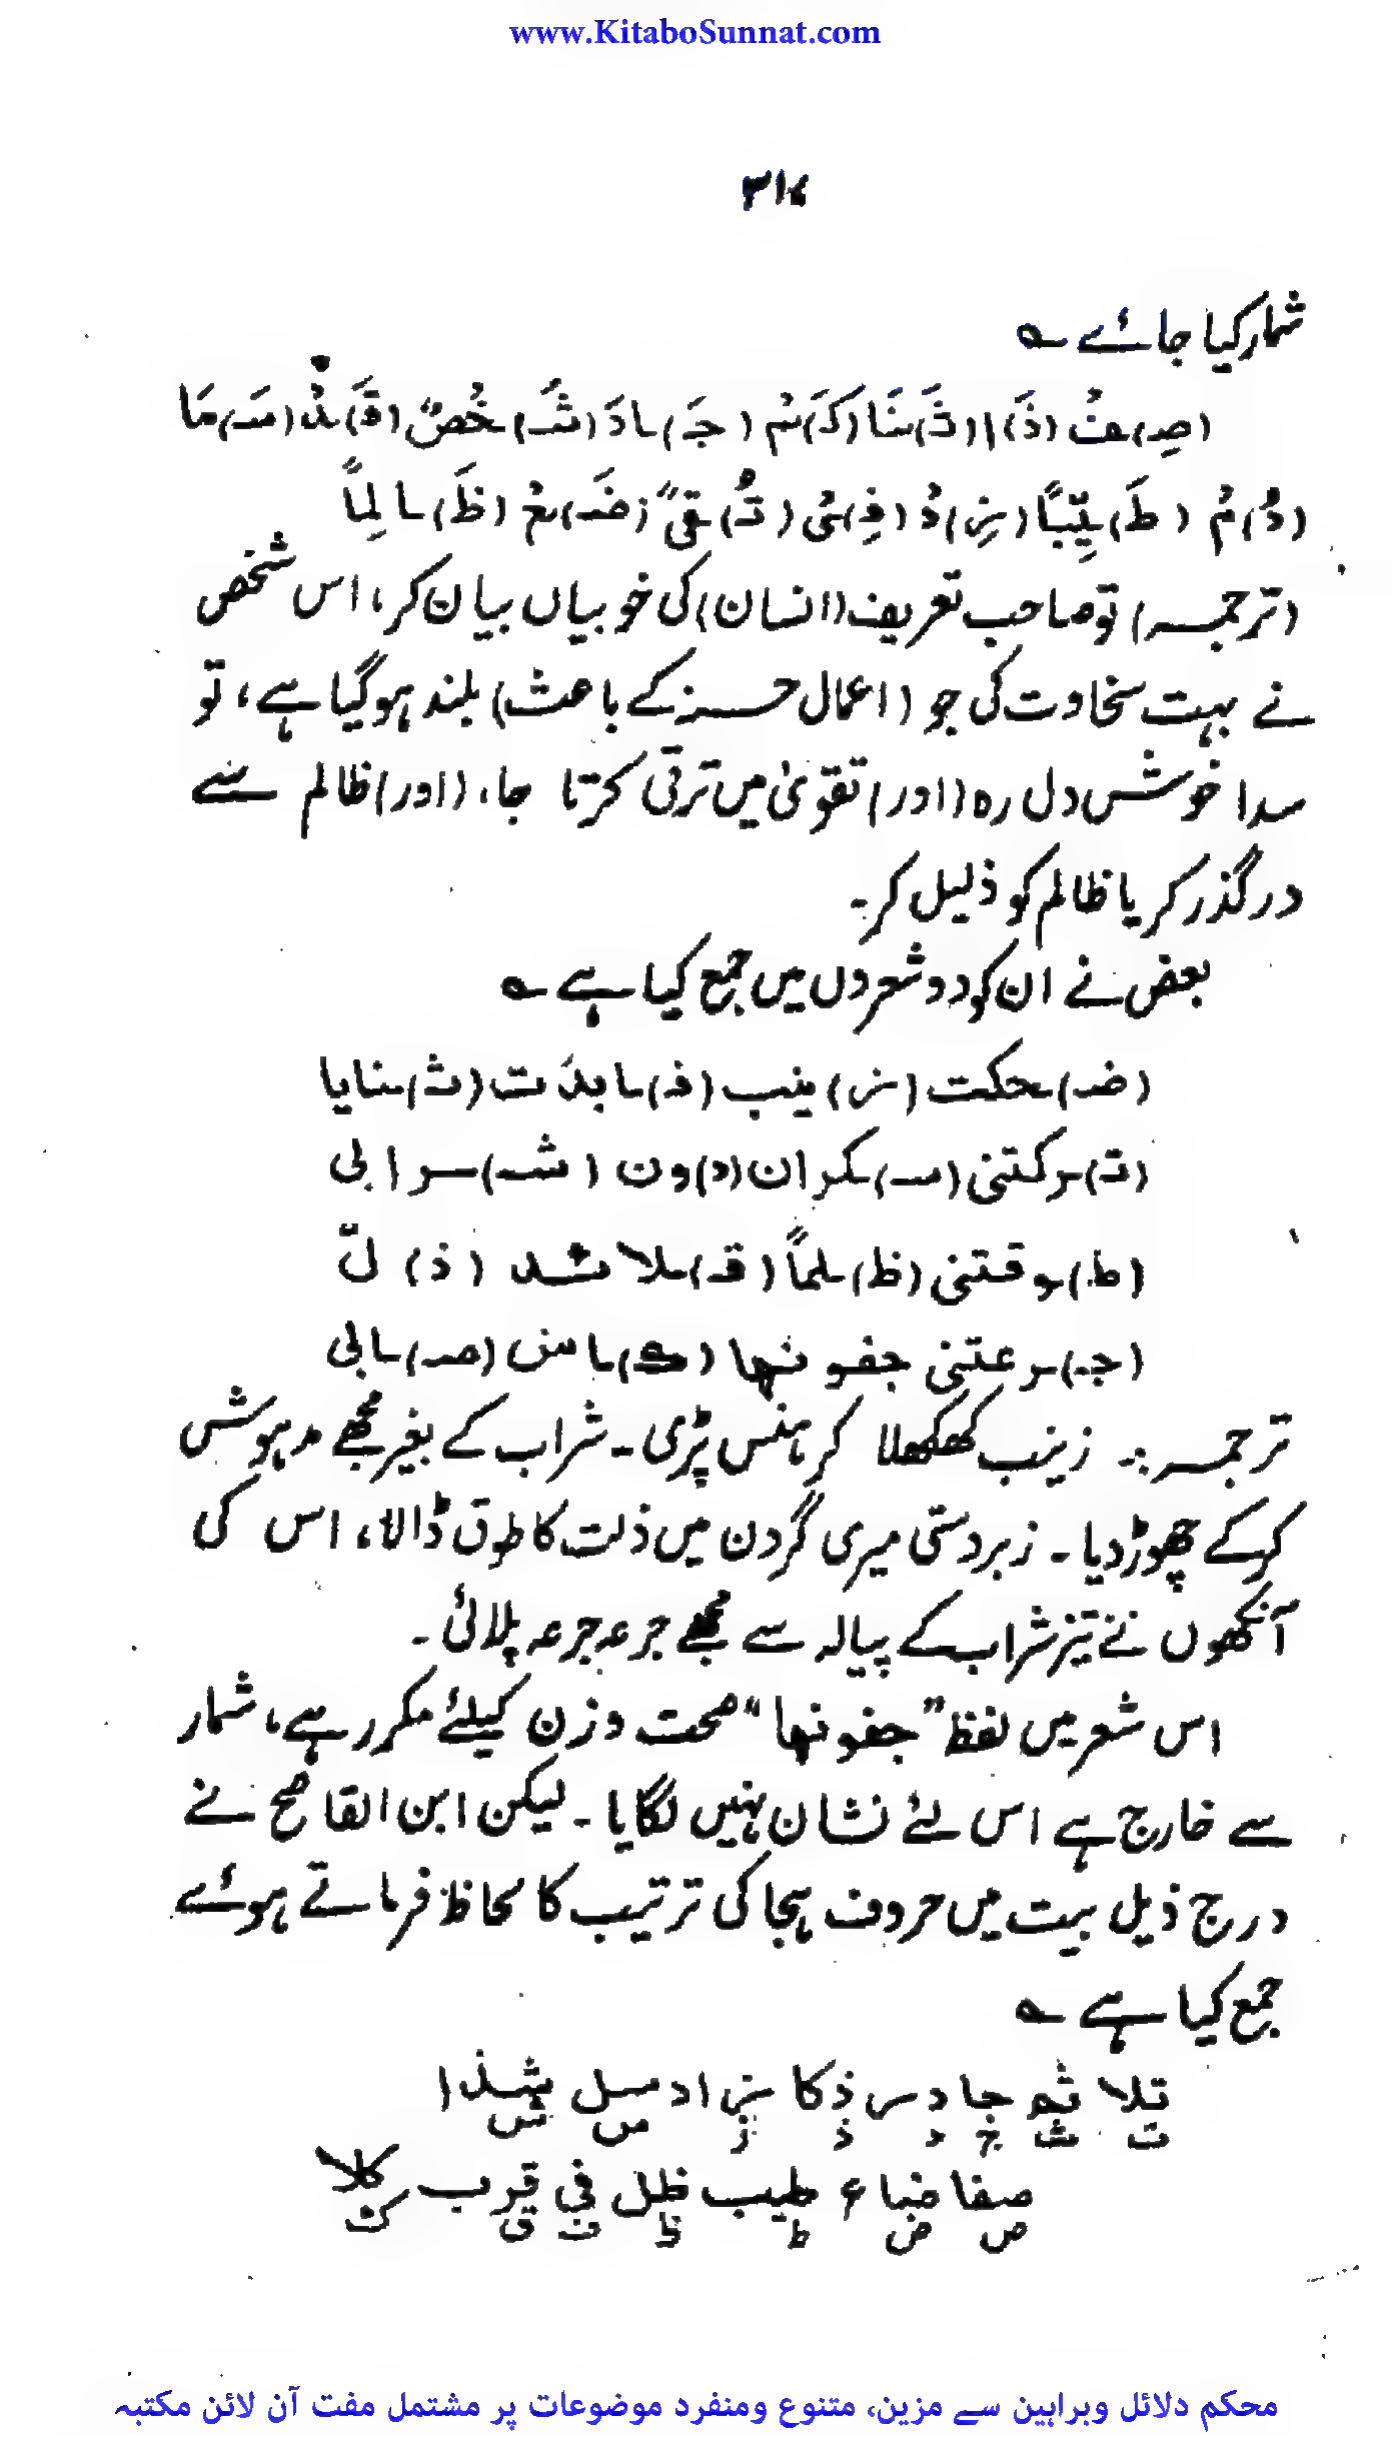 www.KitaboSunnat.com
۳۱۷
شمار کیا جائے ؎
(صِ)ـفْ (ذَ)ا (ثَـ)ـنَا (كَـ)ـمْ (جَـ)ـادَ (شَـ)ـخْصٌ (قَـ)ـدْ (سَـ)ـمَا
(دُ)مْ (طَـ)ـيِّبًا (زِ)دْ (فِـ)ـي (تُـ)ـقًى (ضَـ)ـعْ (ظَـ)ـالِمًا
(ترجمہ) تو صاحب تعریف (انسان) کی خوبیاں بیان کر، اس شخص
نے بہت سخاوت کی جو (اعمال حسنہ کے باعث) بلند ہوگیا ہے، تو
سدا خوش دل رہ (اور) تقویٰ میں ترقی کرتا جا، (اور) ظالم سے
درگذر کر یا ظالم کو ذلیل کر۔
بعض نے ان کو دو شعروں میں جمع کیا ہے ؎
(ضـ)ـحكت (ز)ينب (فـ)ـابدت (ثـ)ـنايا
(تـ)ـركتني (سـ)ـكران (د)ون (شـ)ـرابي
(طـ)ـوقتني (ظـ)ـلماً (قـ)ـلائد (ذ)لّ
(جـ)ـرعتني جفونها (كـ)ـاس (صـ)ـابي
ترجمہ:۔ زینب کھکھلا کر ہنس پڑی۔ شراب کے بغیر مجھے مدہوش
کرکے چھوڑ دیا۔ زبردستی میری گردن میں ذلت کا طوق ڈالا، اس کی
آنکھوں نے تیز شراب کے پیالہ سے مجھے جرعہ جرعہ پلائی۔
اس شعر میں لفظ ”جفونها“ صحت وزن کیلئے مکرر ہے، شمار
سے خارج ہے اس لئے نشان نہیں لگایا۔ لیکن ابن القاصح نے
درج ذیل بیت میں حروف ہجا کی ترتیب کا لحاظ فرماتے ہوئے
جمع کیا ہے ؎
تلا ثم جا در ذكا زاد سل شذا
ت ث ج د ذ ز س ش
صفا ضاء طيب ظل في قرب كلا
ص ض ط ظ ف ق ک
محکم دلائل وبراہین سے مزین، متنوع ومنفرد موضوعات پر مشتمل مفت آن لائن مکتبہ